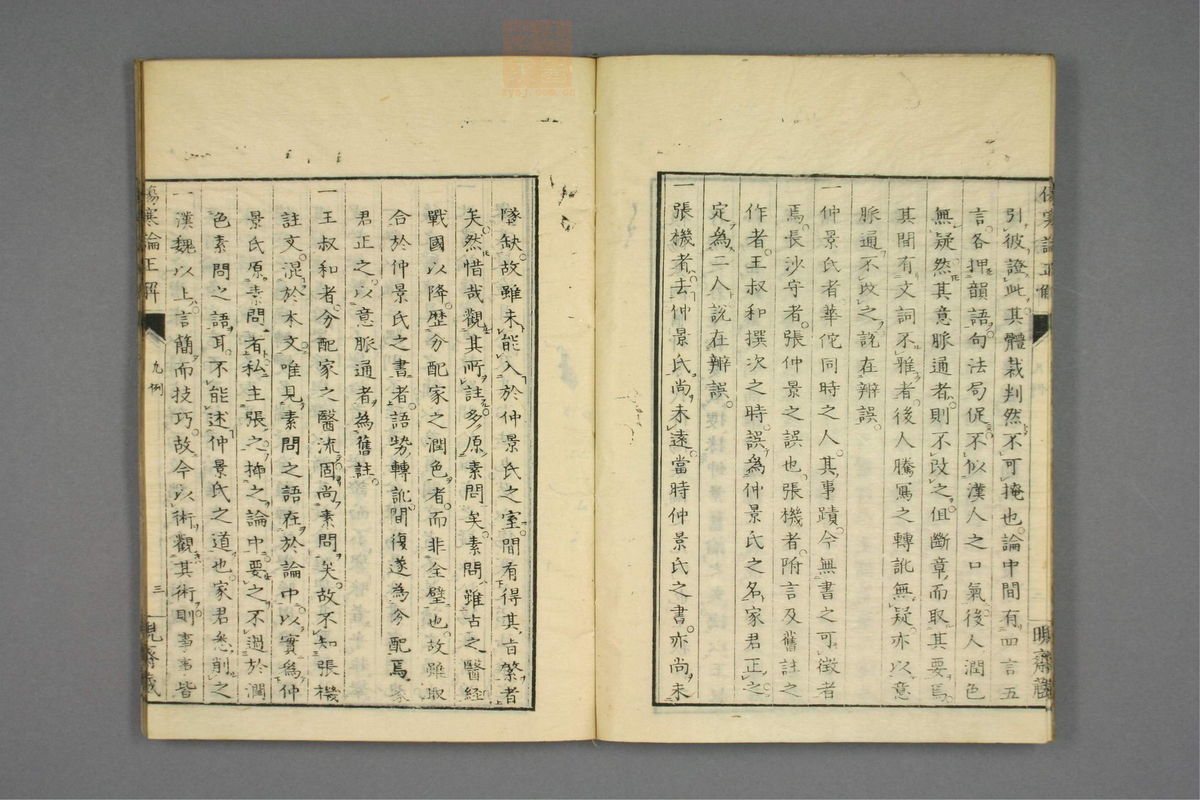 傷寒論正解
引彼證此其體裁判然不可掩也論中間有四言五
言各押韻語句法局促不似漢人之口氣後人潤色
無疑然其意脈通者則不改之但斷章而取其要焉
其間有文詞不雅者後人騰寫之轉訛無疑亦以意
脈通不改之說在辨誤
一仲景氏者華佗同時之人其事蹟今無書之可徵者
焉長沙守者張仲景之誤也張機者附言及舊註之
作者王叔和撰次之時誤為仲景氏之名家君正之
定為二人說在辨誤
一張機者去仲景氏尚未遠當時仲景氏之書亦尚未
墜缺故雖未能入於仲景氏之室間有得其旨繁者
矣然惜哉觀其所註多原素問矣素問雖古之醫經
戰國以降歷分配家之潤色者而非全璧也故雖取
合於仲景氏之書者語勢轉訛間復遂為分配焉家
君正之以意脈通者為舊註
一王叔和者分配家之醫流固尚素問矣故不知張機
註文混於本文唯見素問之語在於論中以實為仲
景氏原素問者私主張之揷之論中要之不過於潤
色素問之語耳不能述仲景氏之道也家君悉削之
一漢魏以上言簡而技巧故今以術觀其術則事事皆
傷寒論正解
凡例
三